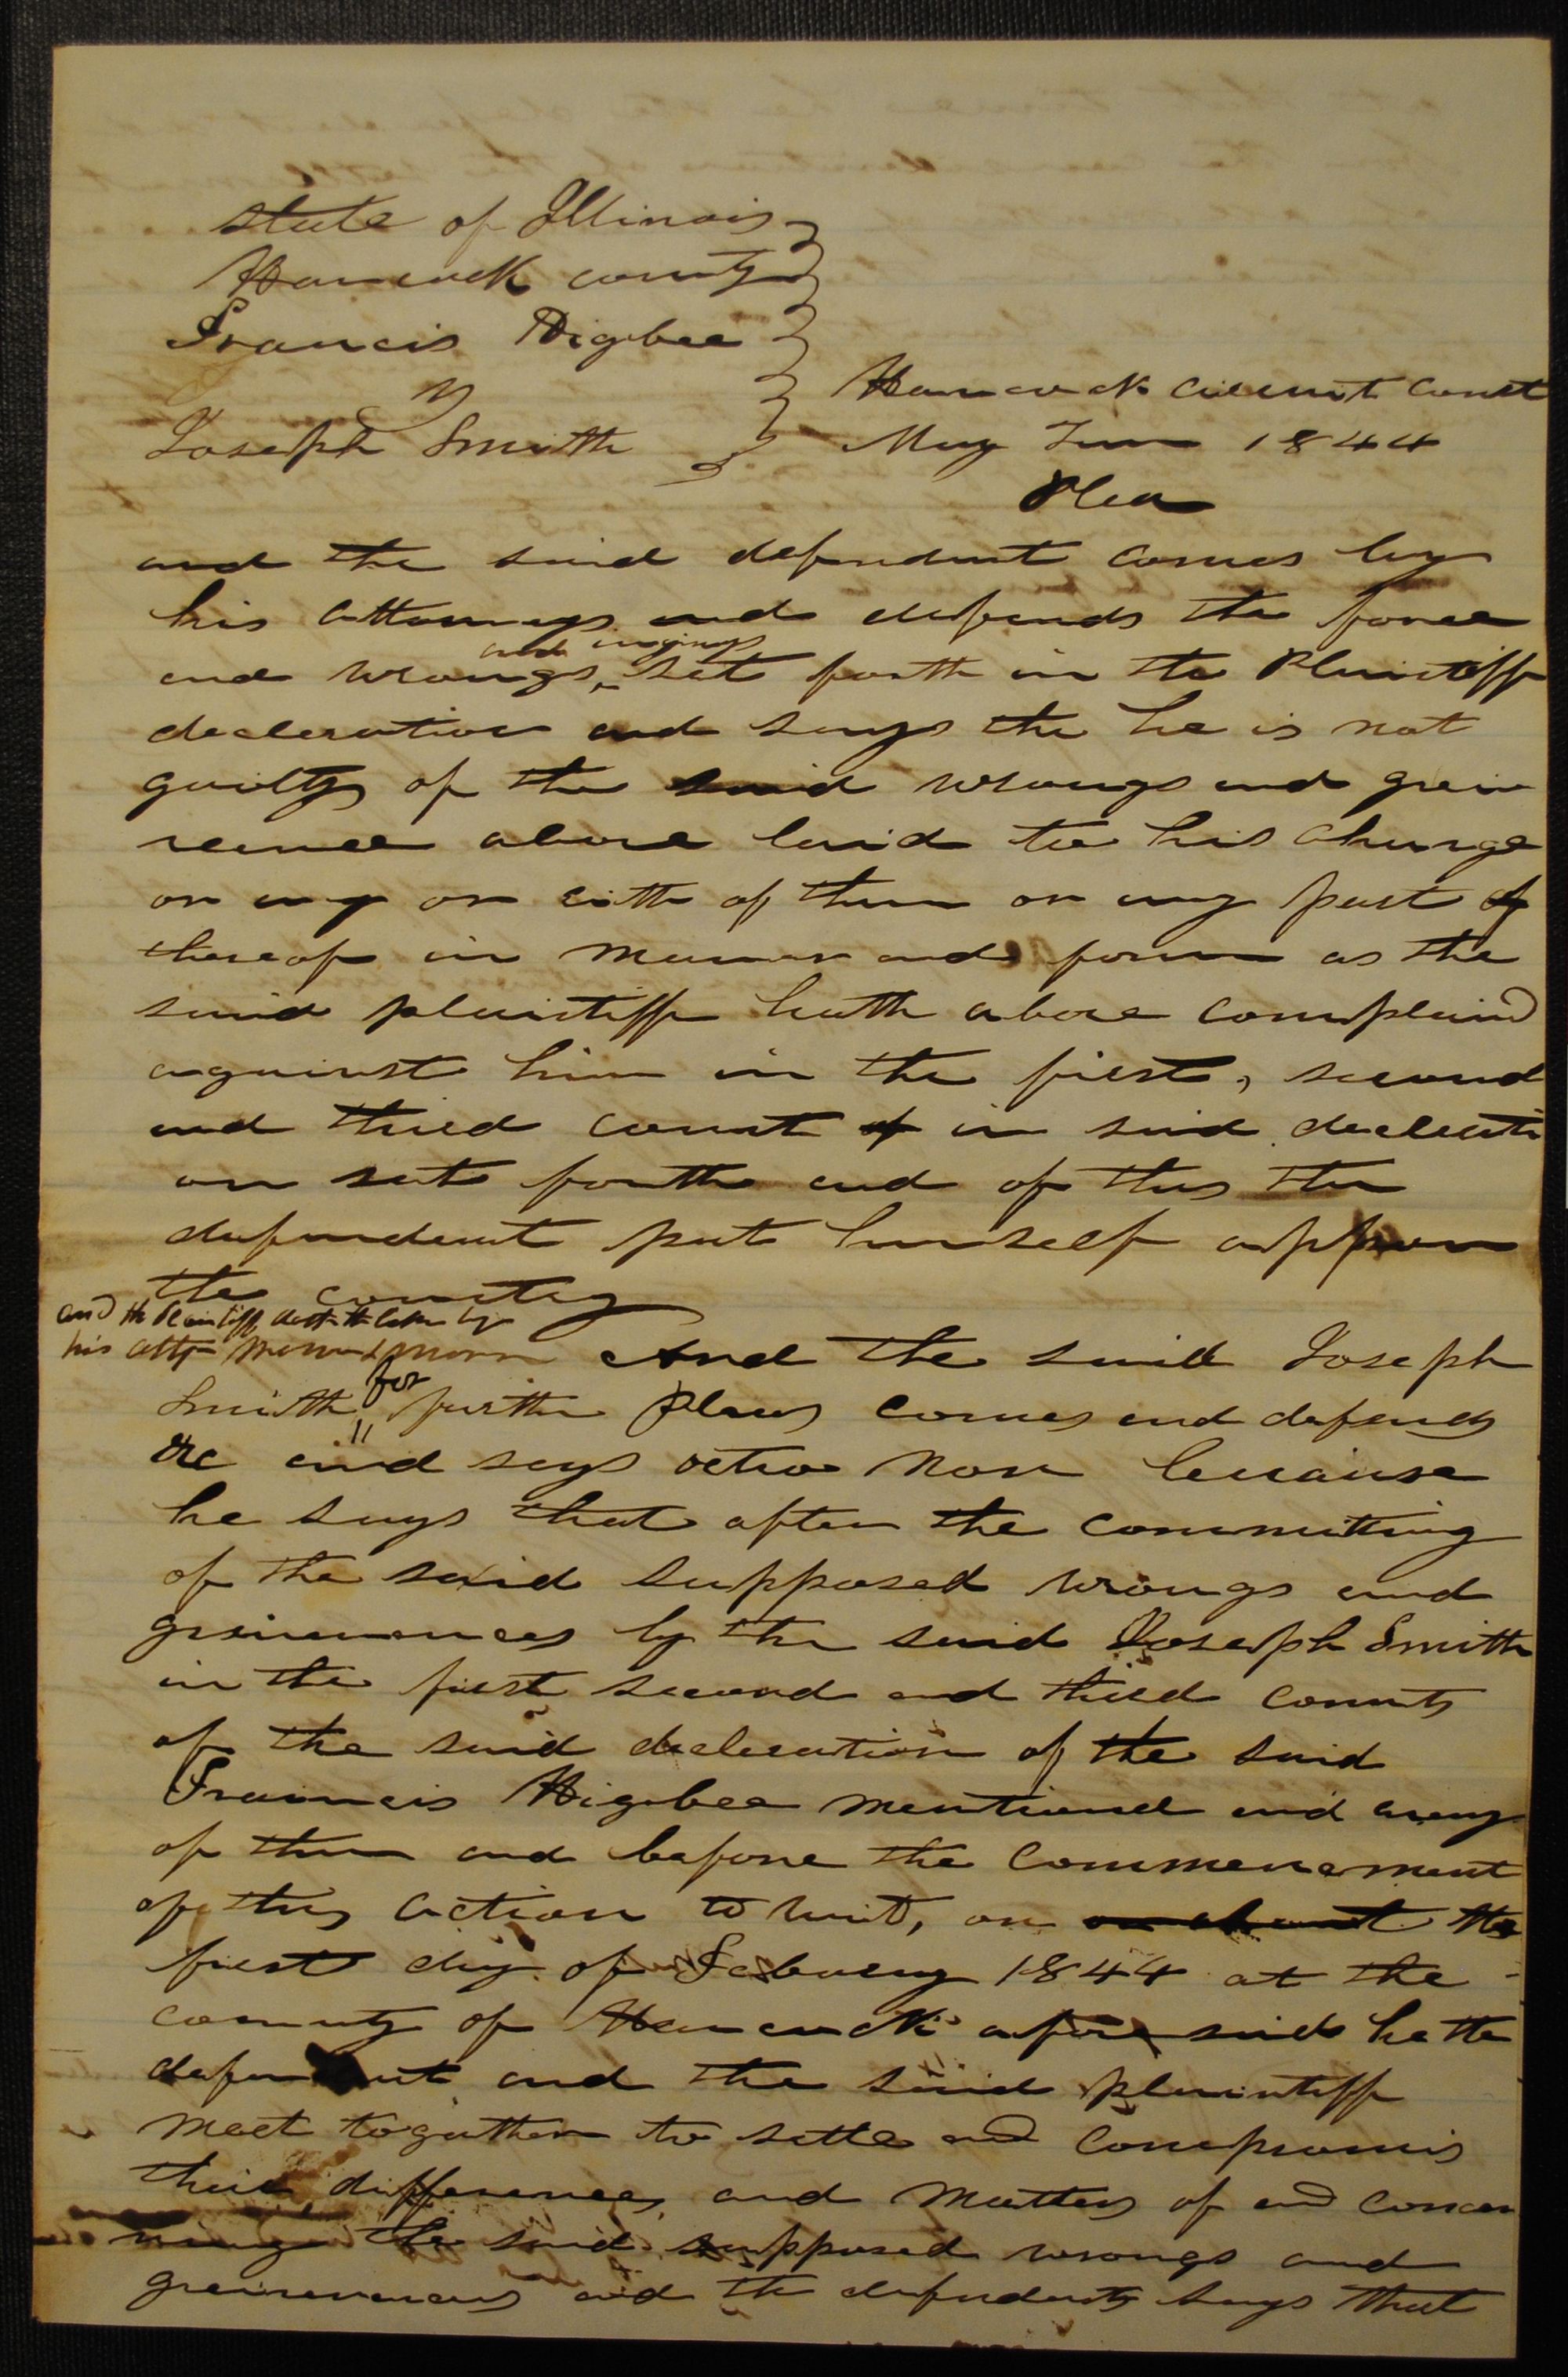 State of Illinois
Hancock county
Francis Higbee
vs
Joseph Smith
Hancock Circuit Court
May Term 1844
Plea
and the said defendant comes by
his attorneys and defends the force
and wrongs, and injuries set forth in the Plaintiff
declaration and says the he is not
guilty of the said wrongs and greiv
reance above laid to his charge
or any or eith of them or any part of
thereof in manner and form as the
said plaintiff hath above complaind
against him in the first, second
and third count of in said declerati
on sete forth and of this the
defendant put himself uppon
the country
and the Plaintiff doth the like by
his attys
And the said Joseph
Smith for further Pleas comes and defends
&c and says actio non because
he says that after the committing
of the said supposed wrongs and
greivances by the said Joseph Smith
in the first second and third counts
of the said decleration of the said
Francis Higbee mentioned and any
of them and before the commencement
of this action to wit, on on about the
first day of Febuary 1844 at the
county of Hancock aforesaid he the
defendant and the said plaintiff
meet togather to settle and compromis
their differences and matters of and concer
ning the said supposed wrongs and
greivences and the defendants says that